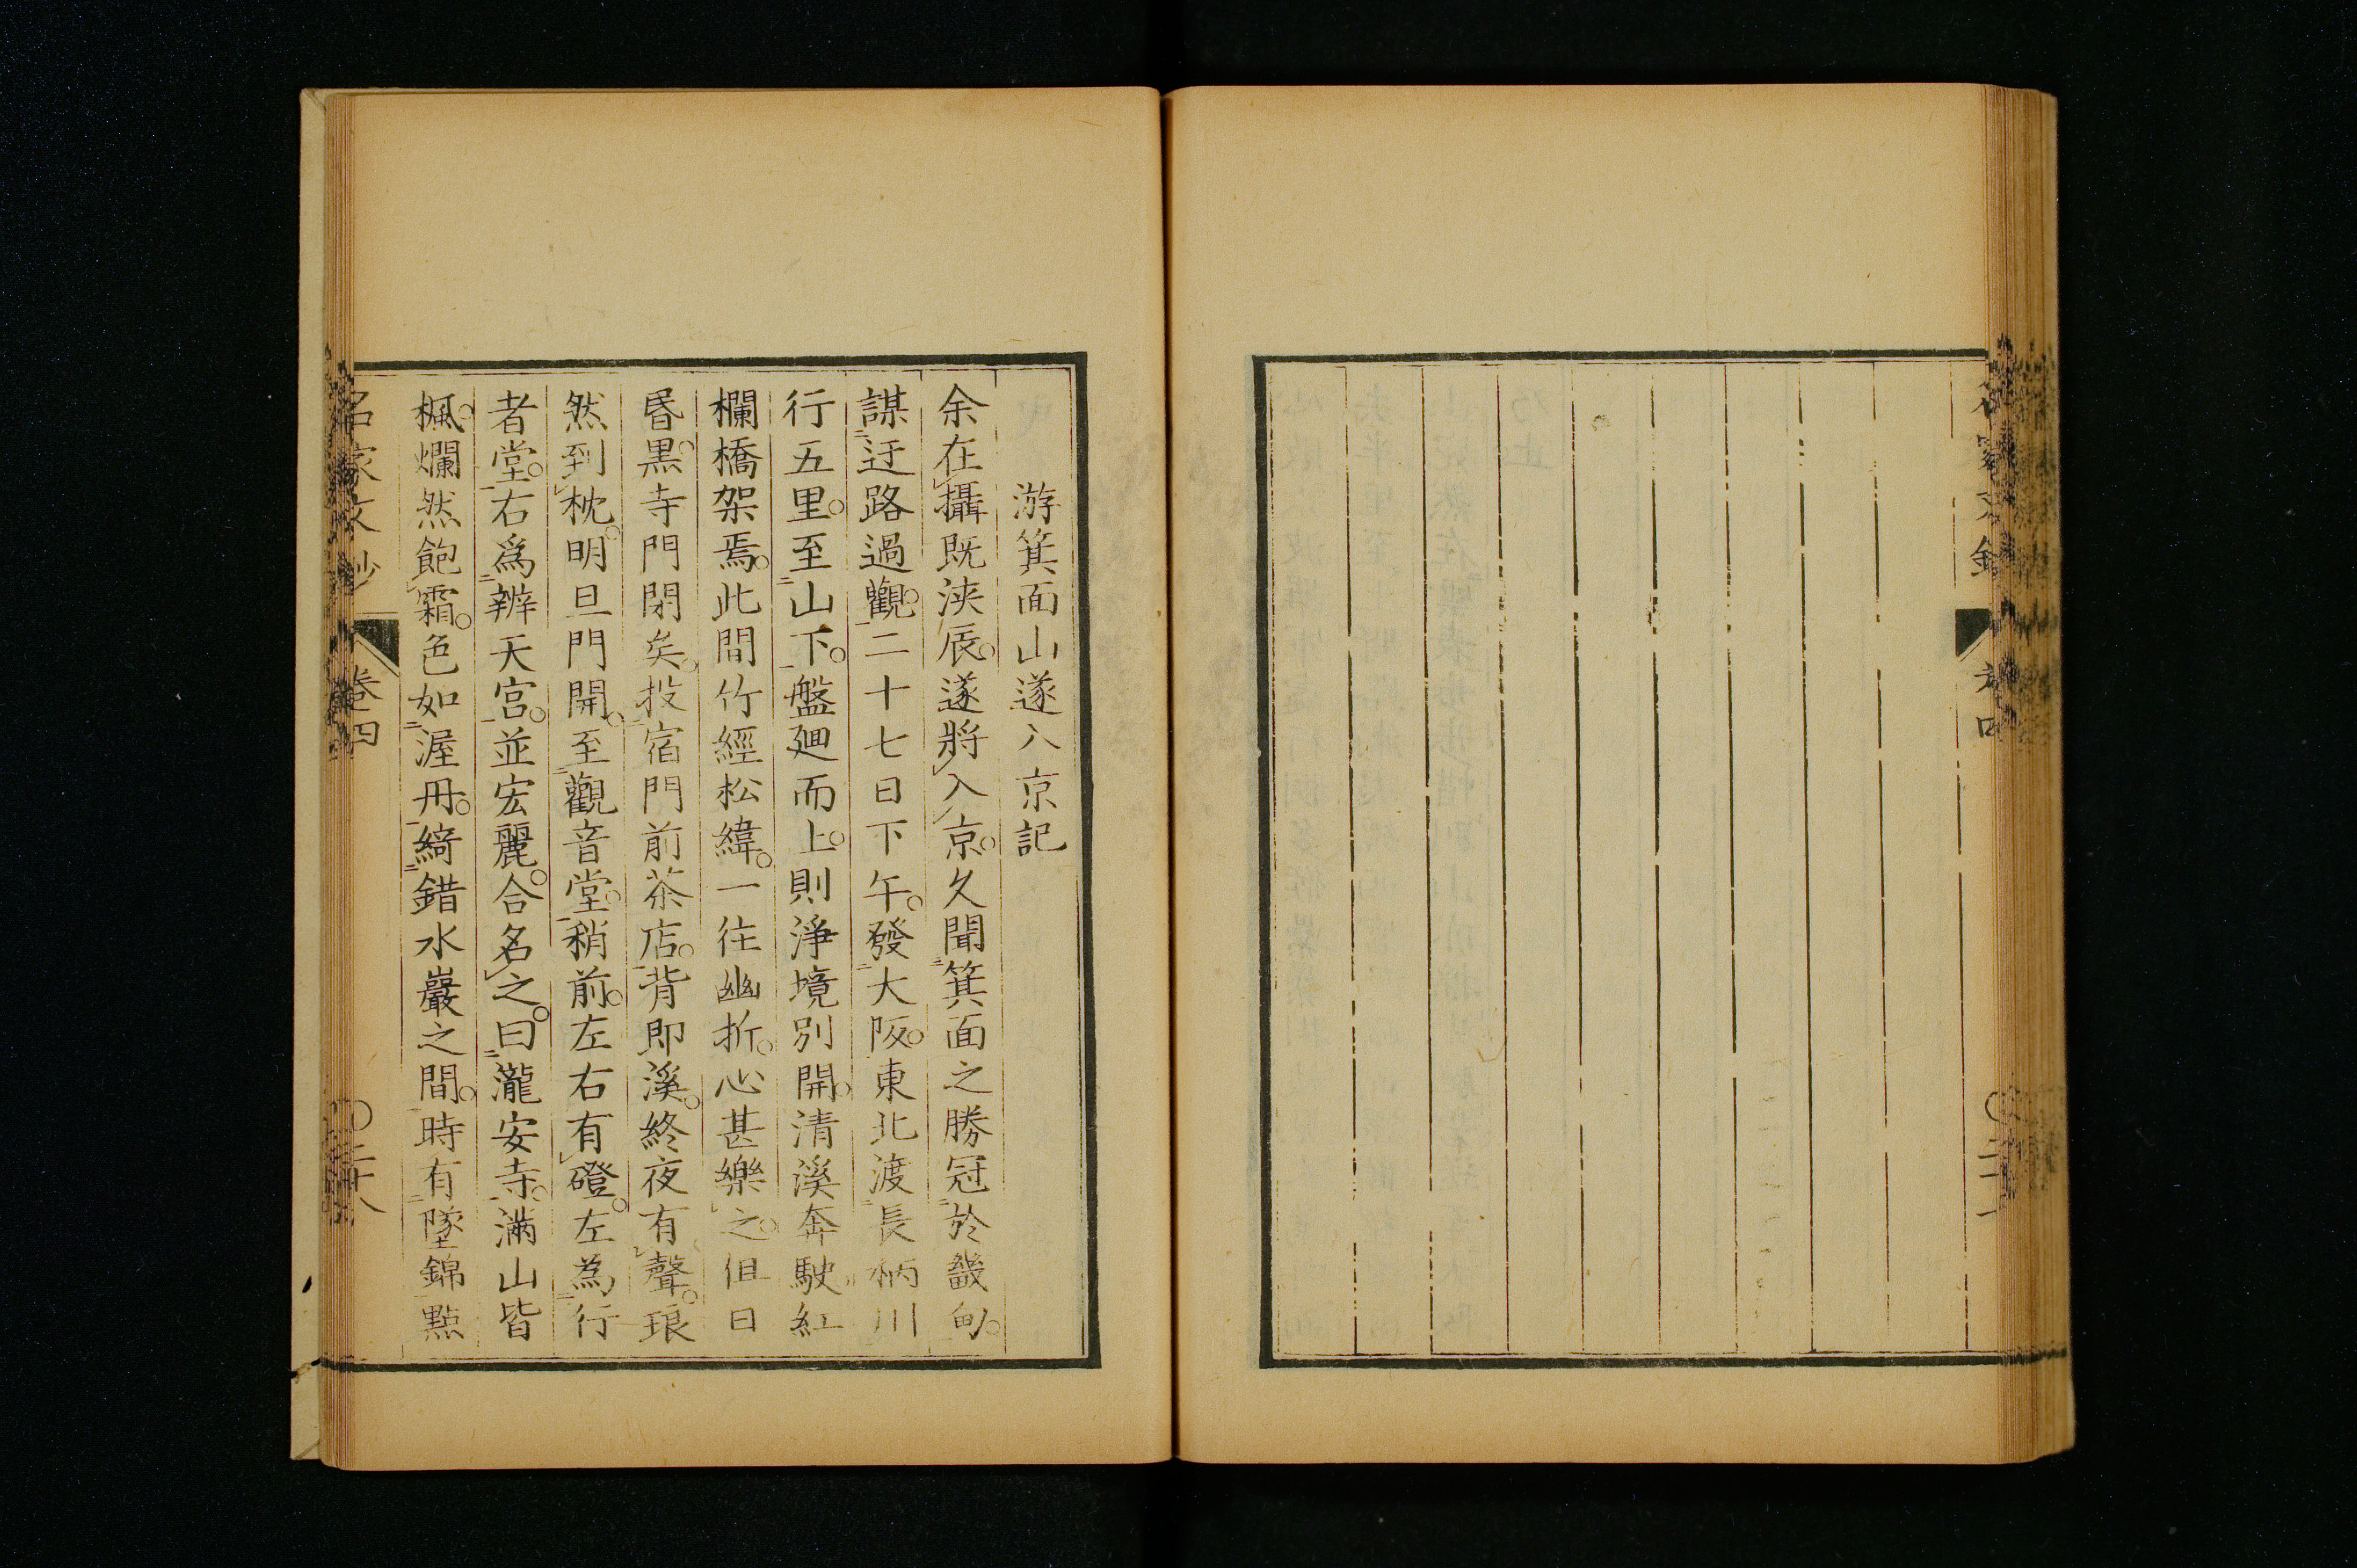 游箕面山遂入京記
余在攝既浹辰。遂將入京。久聞箕面之勝冠於畿甸。
謀迂路過觀。二十七日下午。發大阪。東北渡長柄川
行五里。至山下。盤廻而上。則淨境別開。清溪奔駛紅
欄橋架焉。此間竹經松緯。一往幽折。心甚樂之。但日
昏黒。寺門閉矣。投宿門前茶店。背即溪。終夜有聲。琅
然到枕。明旦門開。至觀音堂。稍前。左右有磴。左為行
者堂。右爲辨天宮。並宏麗。合名之。曰瀧安寺。滿山皆
楓。爛然飽霜。色如渥丹。綺錯水巖之間。時有墜錦點
名家文抄
卷四